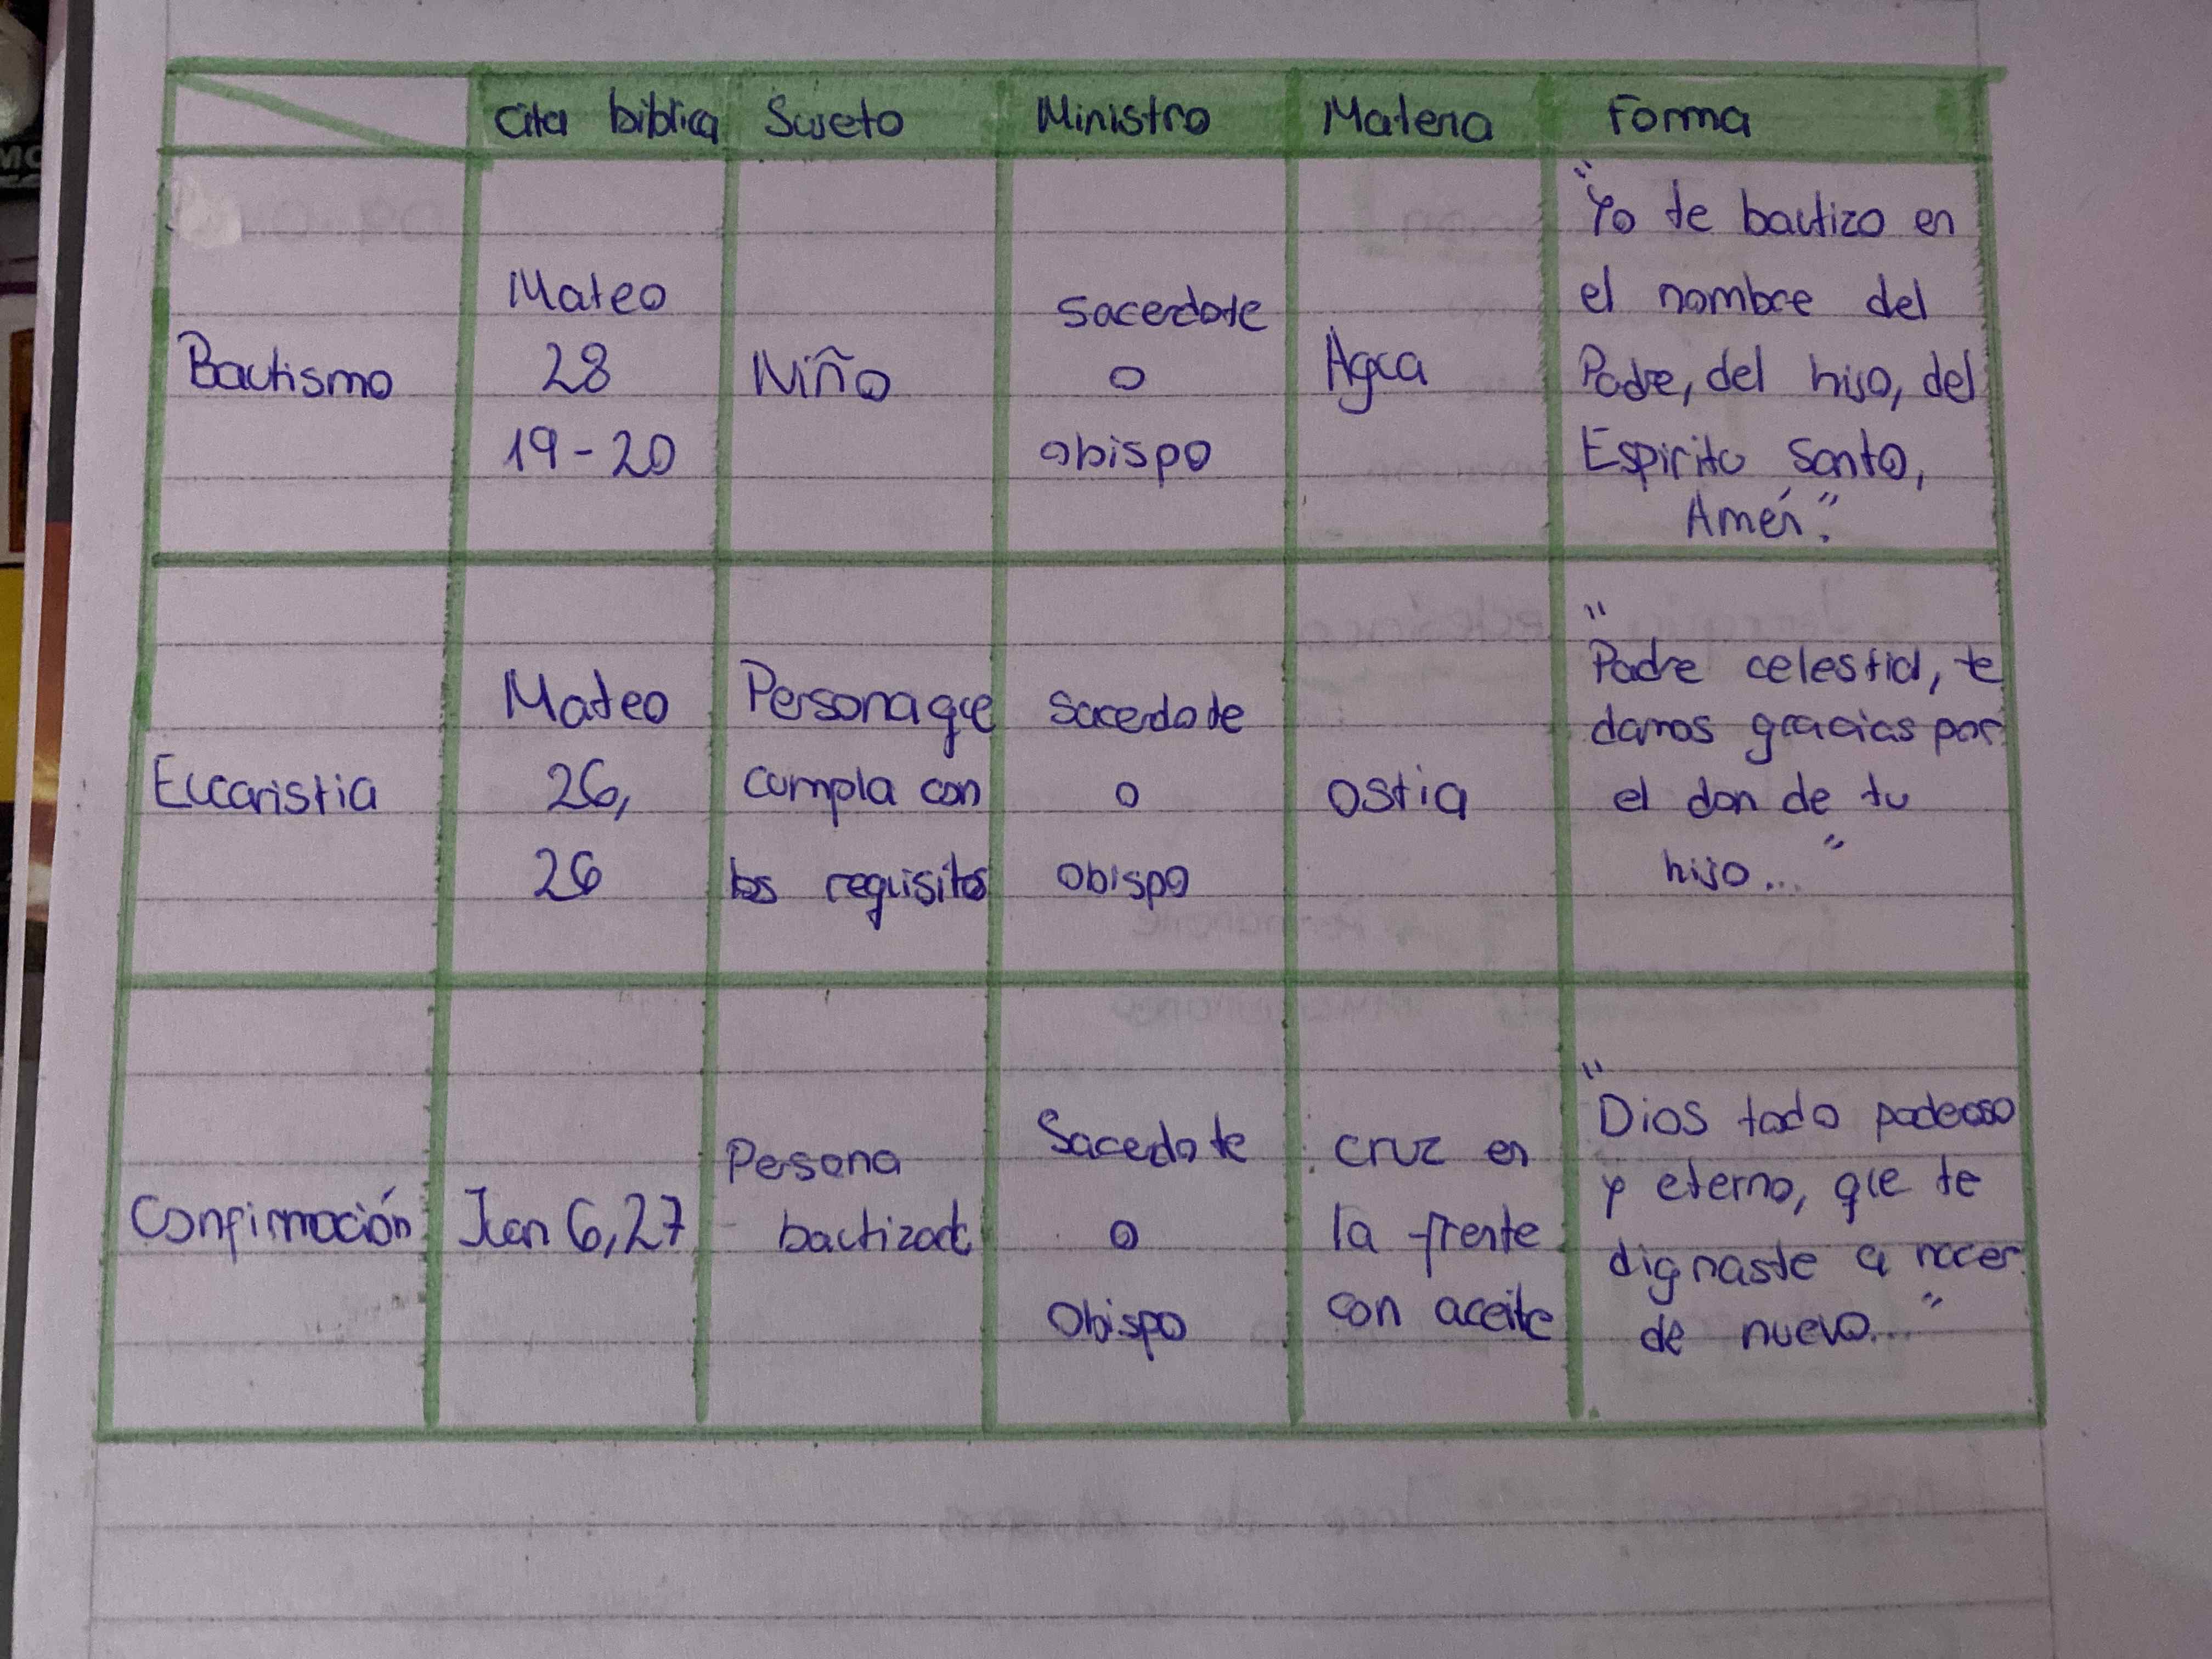 Cita biblica Sujeto Ministro Materia Forma
Bautismo
Mateo
28
19-20
Niño
Sacerdote
o
obispo
Agua
"Yo te bautizo en
el nombre del
Padre, del hijo, del
Espiritu Santo,
Amén".
Eucaristia
Mateo
26,
26
Persona que
cumpla con
los requisitos
Sacerdote
o
Obispo
Ostia
"Padre celestial, te
damos gracias por
el don de tu
hijo..."
Confirmación
Juan 6,27
Persona
bautizada
Sacerdote
o
Obispo
cruz en
la frente
con aceite
"Dios todo poderoso
y eterno, que te
dignaste a nacer
de nuevo..."